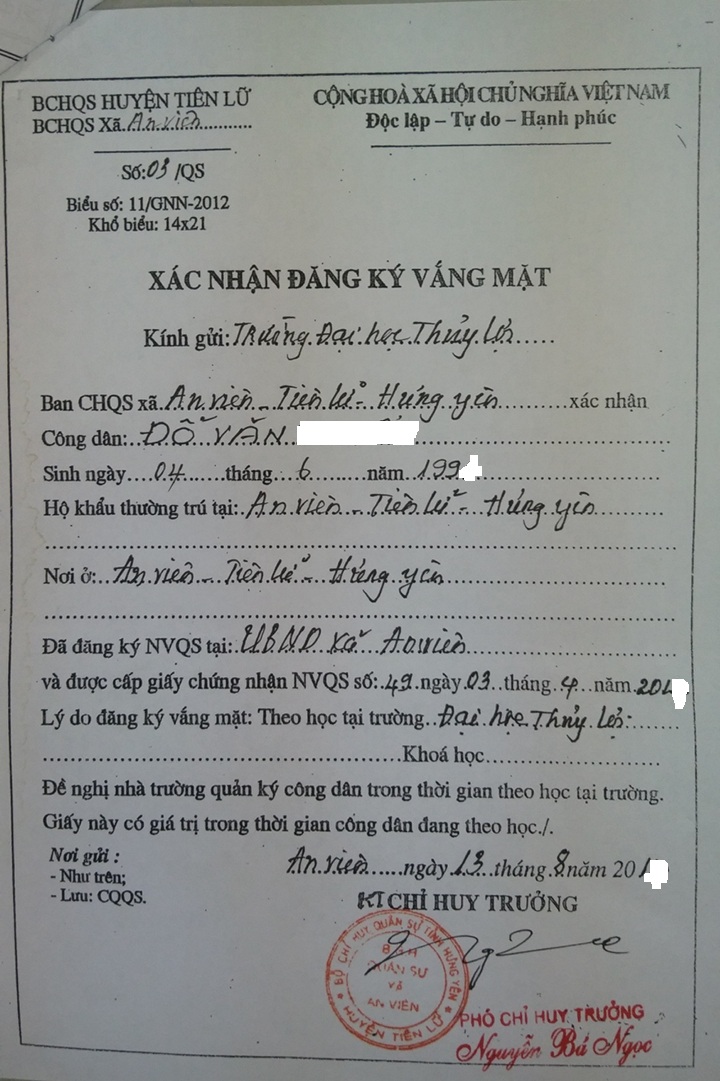 BCHQS HUYỆN TIÊN LỮ
BCHQS Xã.An.viên
CỘNG HOÀ XÃ HỘI CHỦ NGHĨA VIỆT NAM
Độc lập – Tự do – Hạnh phúc
Số:03/QS
Biểu số: 11/GNN-2012
Khổ biểu: 14x21
XÁC NHẬN ĐĂNG KÝ VẮNG MẶT
Kính gửi: Trường Đại học Thủy lợi
Ban CHQS xã An viên - Tiên lữ - Hưng yên xác nhận
Công dân: ĐỖ VĂN
Sinh ngày 04 tháng 6 năm 199
Hộ khẩu thường trú tại: An viên - Tiên lữ - Hưng yên
Nơi ở: An viên - Tiên lữ - Hưng yên
Đã đăng ký NVQS tại: UBND xã An viên
và được cấp giấy chứng nhận NVQS số: 49 ngày 03 tháng 4 năm 201
Lý do đăng ký vắng mặt: Theo học tại trường Đại học Thủy lợi
Khoá học
Đề nghị nhà trường quản ký công dân trong thời gian theo học tại trường.
Giấy này có giá trị trong thời gian công dân đang theo học./.
Nơi gửi :
- Như trên;
- Lưu: CQQS.
An viên ngày 13 tháng 8 năm 201
KT CHỈ HUY TRƯỞNG
BỘ CHỈ HUY QUÂN SỰ TỈNH HƯNG YÊN
BCH
QUÂN SỰ
Xã
AN VIÊN
HUYỆN TIÊN LỮ
PHÓ CHỈ HUY TRƯỞNG
Nguyễn Bá Ngọc